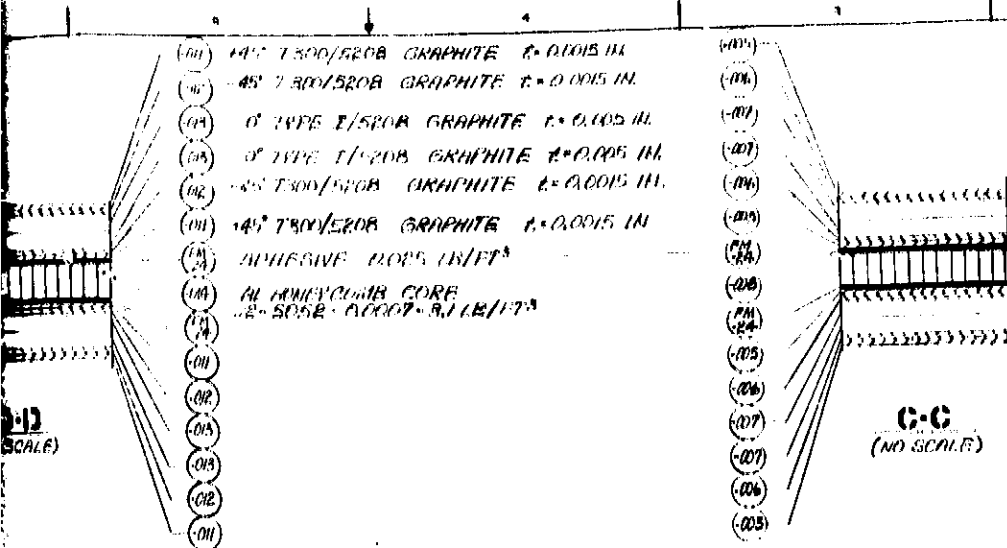 4
(-011) +45° T300/5208 GRAPHITE t=0.0015 IN.
-45° T300/5208 GRAPHITE t=0.0015 IN.
(-013) 0° TYPE I/5208 GRAPHITE t=0.005 IN.
(-013) 0° TYPE I/5208 GRAPHITE t=0.005 IN.
(-012) -45° T300/5208 GRAPHITE t=0.0015 IN.
(-011) +45° T300/5208 GRAPHITE t=0.0015 IN
ADHESIVE
(-014) AL HONEYCOMB CORE
5052-0.0007-3.1 LB/FT³
(-011)
(-012)
(-013)
(-013)
(-012)
(-011)
(-005)
(-006)
(-007)
(-007)
(-006)
(-005)
(FM 24)
(-008)
(FM 24)
(-005)
(-006)
(-007)
(-007)
(-006)
(-005)
SCALE)
C-C
(NO SCALE)